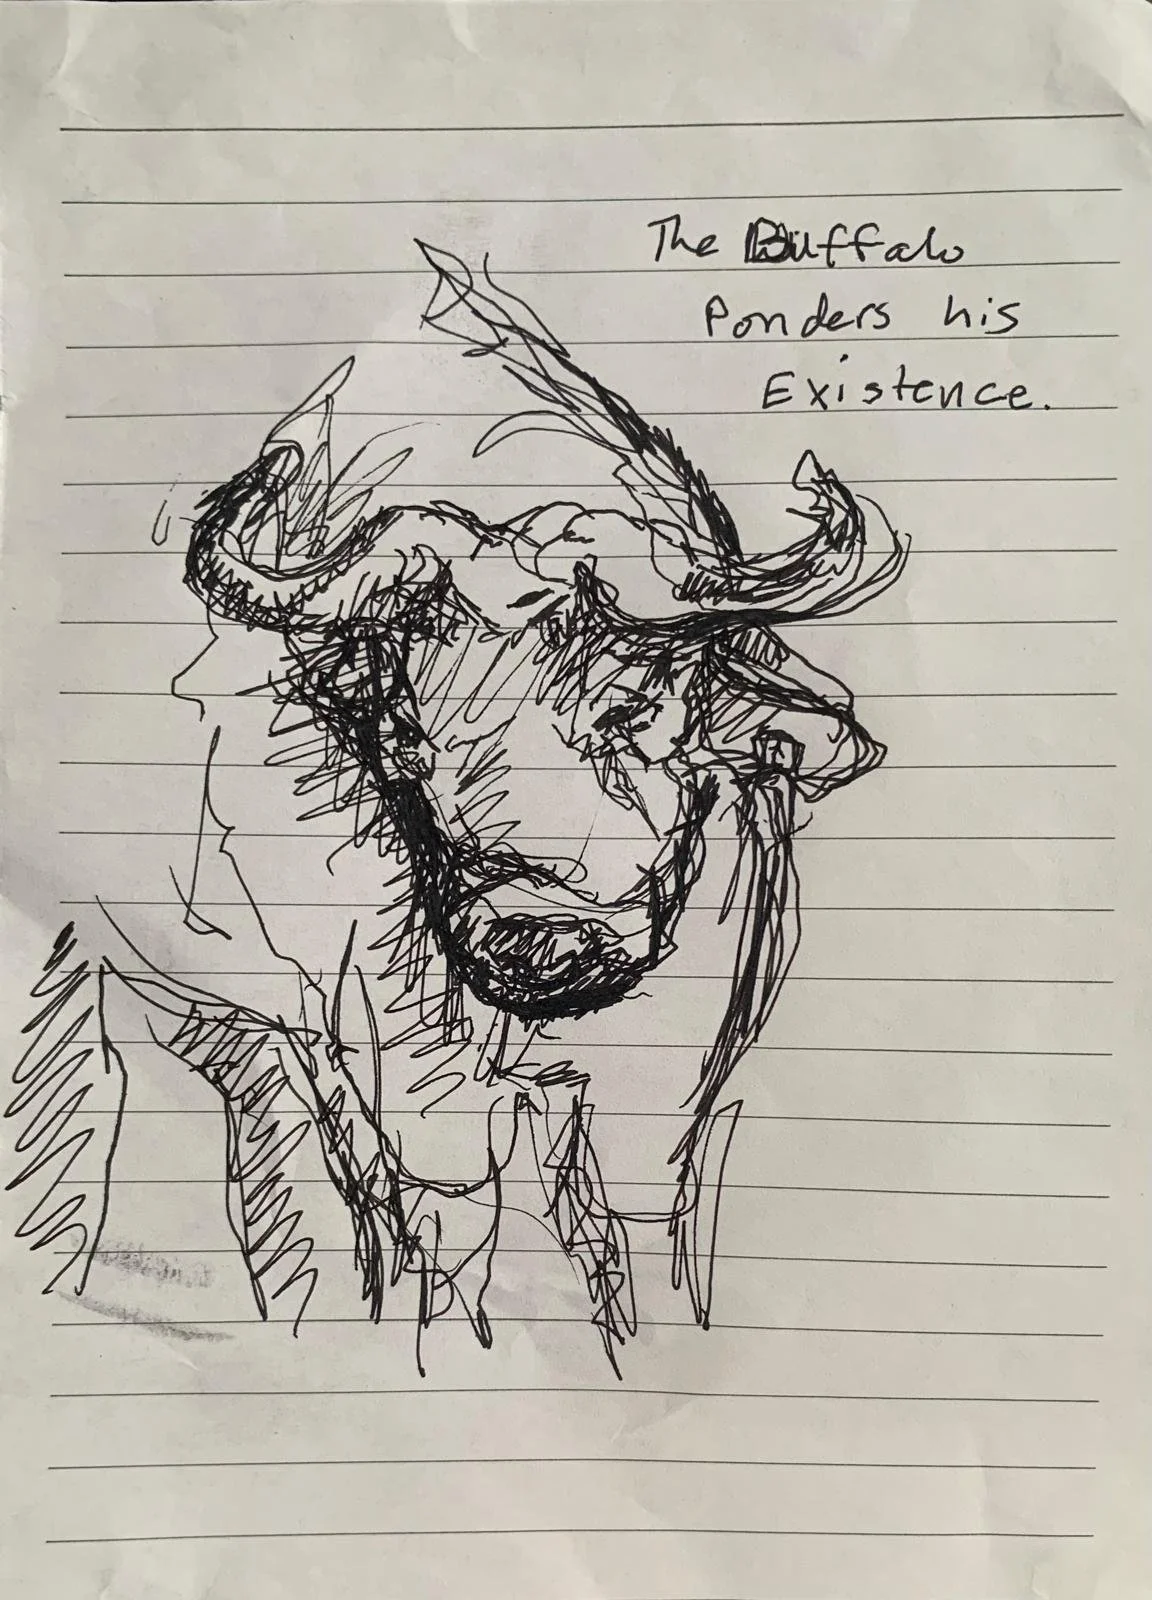 The Buffalo
Ponders his
Existence.